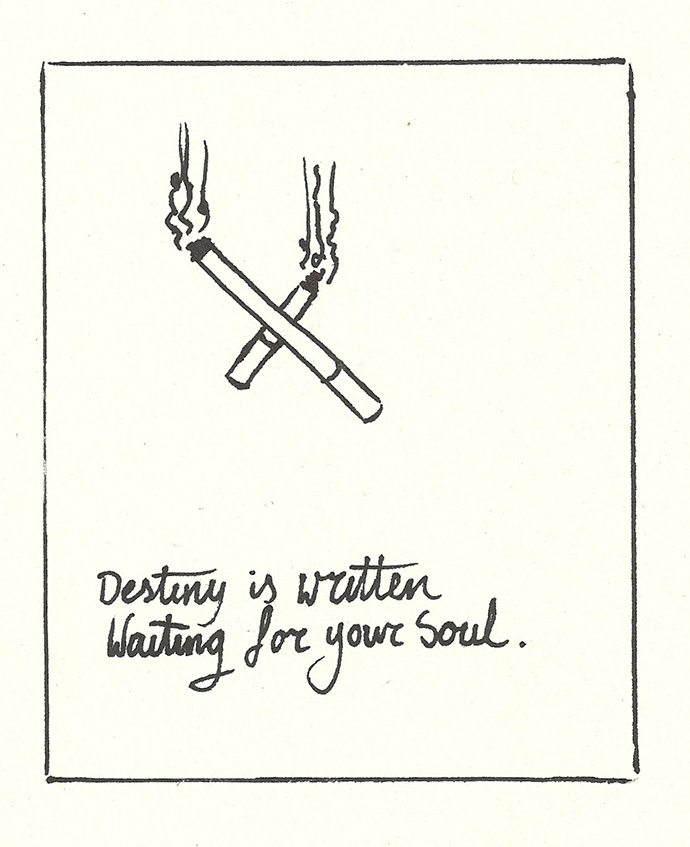 Destiny is written
Waiting for your Soul.